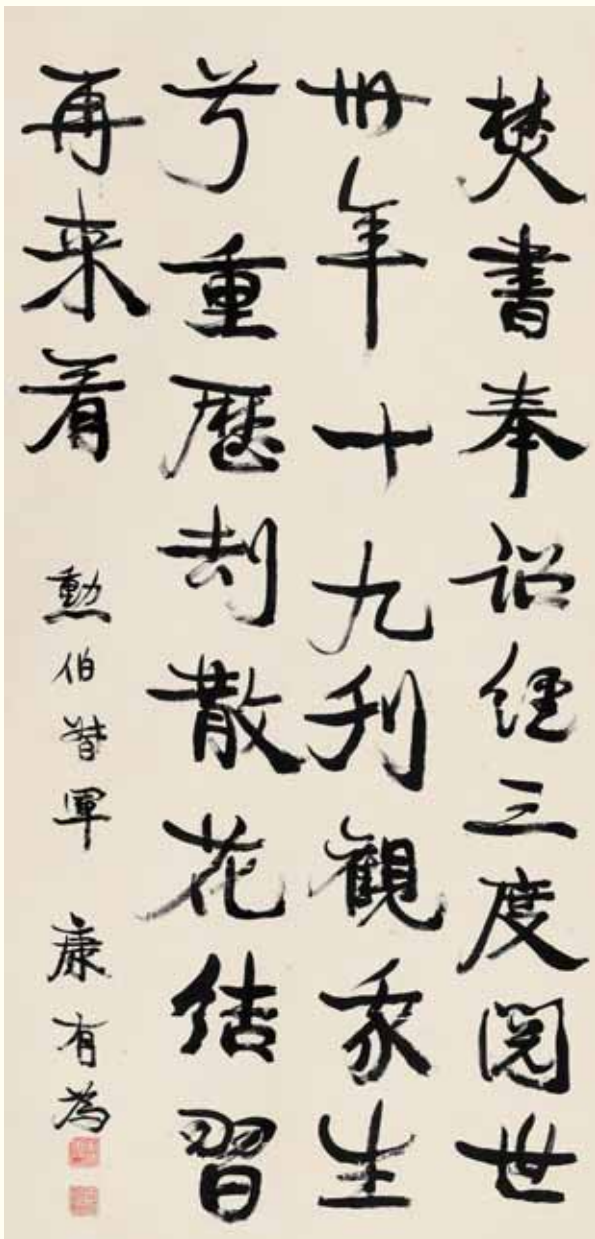 焚書奉詔經三度閱世
卅年十九刊觀我生
兮重歷刦散花結習
再来看
勲伯督軍 康有為